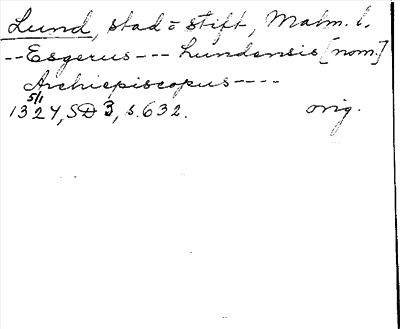 Lund, stad = stift, Malm. l.
-- Esgerus --- Lundensis [nom.]
Archiepiscopus ----
5/1
1324, SD 3, s. 632. orig.